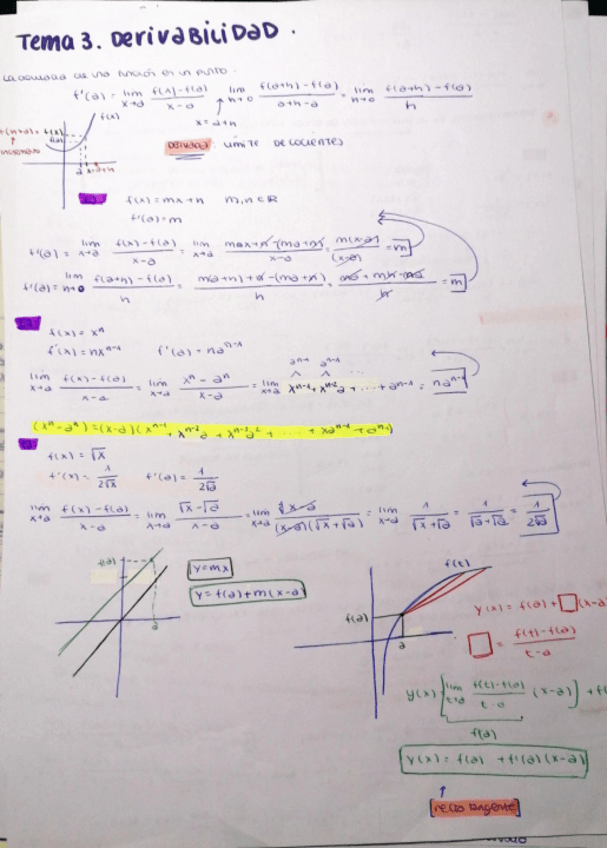 Tema 3. DERIVABILIDAD.
f'(a) = lim x→a f(x)-f(a) / x-a = lim h→0 f(a+h)-f(a) / a+h-a = lim h→0 f(a+h)-f(a) / h
x=a+h
f(x)
f(x)
f(a)
incremento
a x=a+h
DERIVADA: LÍMITE DE COCIENTES
f(x) = mx+n m,n∈ℝ
f'(a)=m
f'(a) = lim x→a f(x)-f(a) / x-a = lim x→a mx+n-(ma+n) / x-a = m(x-a) / (x-a) = m
f'(a) = lim h→0 f(a+h)-f(a) / h = m(a+h)+n-(ma+n) / h = ma+mh-ma / h = m
f(x) = xⁿ
f'(x) = nxⁿ⁻¹ f'(a) = naⁿ⁻¹
aⁿ⁻¹ aⁿ⁻¹ ...
lim x→a f(x)-f(a) / x-a = lim x→a xⁿ-aⁿ / x-a = lim x→a xⁿ⁻¹+xⁿ⁻²a+...+aⁿ⁻¹ = naⁿ⁻¹
(xⁿ-aⁿ)=(x-a)(xⁿ⁻¹+xⁿ⁻²a+xⁿ⁻³a²+.....+xaⁿ⁻²+aⁿ⁻¹)
f(x) = √x
f'(x) = 1 / 2√x f'(a) = 1 / 2√a
lim x→a f(x)-f(a) / x-a = lim x→a √x-√a / x-a = lim x→a x-a / (x-a)(√x+√a) = lim x→a 1 / √x+√a = 1 / √a+√a = 1 / 2√a
f(a)
a
y=mx
y=f(a)+m(x-a)
f(t)
f(a)
a
y(x) = f(a)+□(x-a
□ = f(t)-f(a) / t-a
y(x) [lim t→a f(t)-f(a) / t-a (x-a)] + f(
f(a)
y(x) = f(a) + f'(a)(x-a)
recta tangente